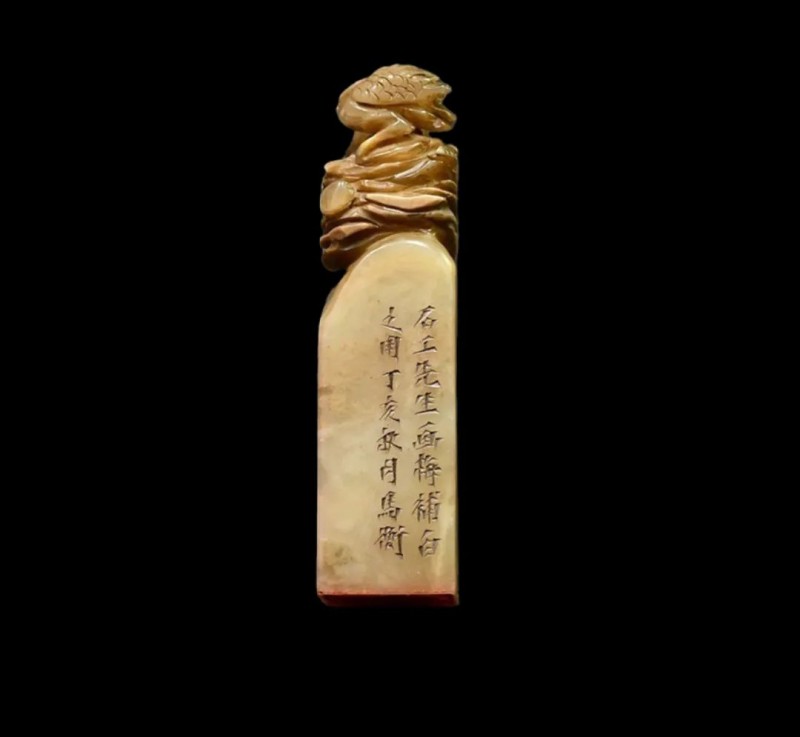 石工先生画梅補白
之用丁亥秋月馬衡